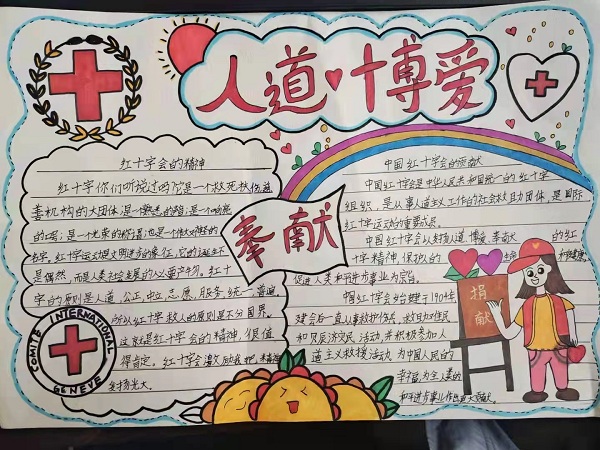 人道博爱
奉献
红十字会的精神
红十字你们听说过吗?它是一个救死扶伤,慈
善机构的大团体;是一个熟悉的
的口号;是一个光荣的称谓;也是一个伟大
名字。红十字运动是文明进步的象征,它的诞生不
是偶然,而是人类社会发展的必要产物。红十
字的原则是人道、公正、中立、志愿、服务、统一、普遍。
所以红十字救人的原则是不分国界。
这就是红十字会的精神,很值
得肯定。红十字会激励我们把精神
发扬光大
COMITE INTERNATIONAL GENEVE
中国红十字会的贡献
中国红十字会是中华人民共和国统一的红十字
组织,是从事人道主义工作的社会救助团体,是国际
红十字运动的重要成员。
中国红十字会以发扬人道、博爱、奉献的红
十字精神,保护人的生命和健康,
促进人类和平进步事业为宗旨。
中国红十字会始建于1904年,
建会后一直从事救护伤兵、救助
和
道主义救援活动,为中国人民的
幸福,为全人类的
和平进步事业作出重大贡献。
捐献